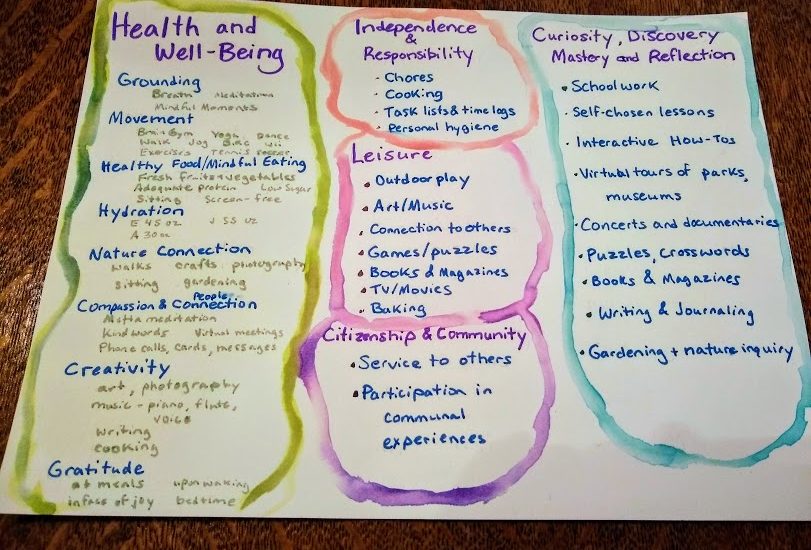 Health and
Well-Being
Grounding
Breath Meditation
Mindful Moments
Movement
Brain Gym Yoga Dance
Walk Jog Bike Wii
Exercises Tennis soccer
Healthy Food/Mindful Eating
Fresh fruits + vegetables
Adequate protein Low Sugar
Sitting Screen-free
Hydration
E 45 oz J 55 oz
A 30 oz
Nature Connection
Walks crafts photography
Sitting gardening
People
Compassion & Connection
Metta meditation
Kind words Virtual meetings
Phone calls, cards, messages
Creativity
art, photography
music - piano, flute,
voice
writing
cooking
Gratitude
at meals upon waking
in face of joy bedtime
Independence
&
Responsibility
· Chores
· Cooking
· Task lists & time logs
· Personal hygiene
Leisure
• Outdoor play
• Art/Music
• Connection to others
• Games/puzzles
• Books & Magazines
• TV/Movies
• Baking
Citizenship & Community
• Service to others
• Participation in
communal
experiences
Curiosity, Discovery
Mastery and Reflection
• School work
· Self-chosen lessons
· Interactive How-Tos
· Virtual tours of parks,
museums
· Concerts and documentaries
· Puzzles, Crosswords
• Books & Magazines
• Writing & Journaling
• Gardening + nature inquiry